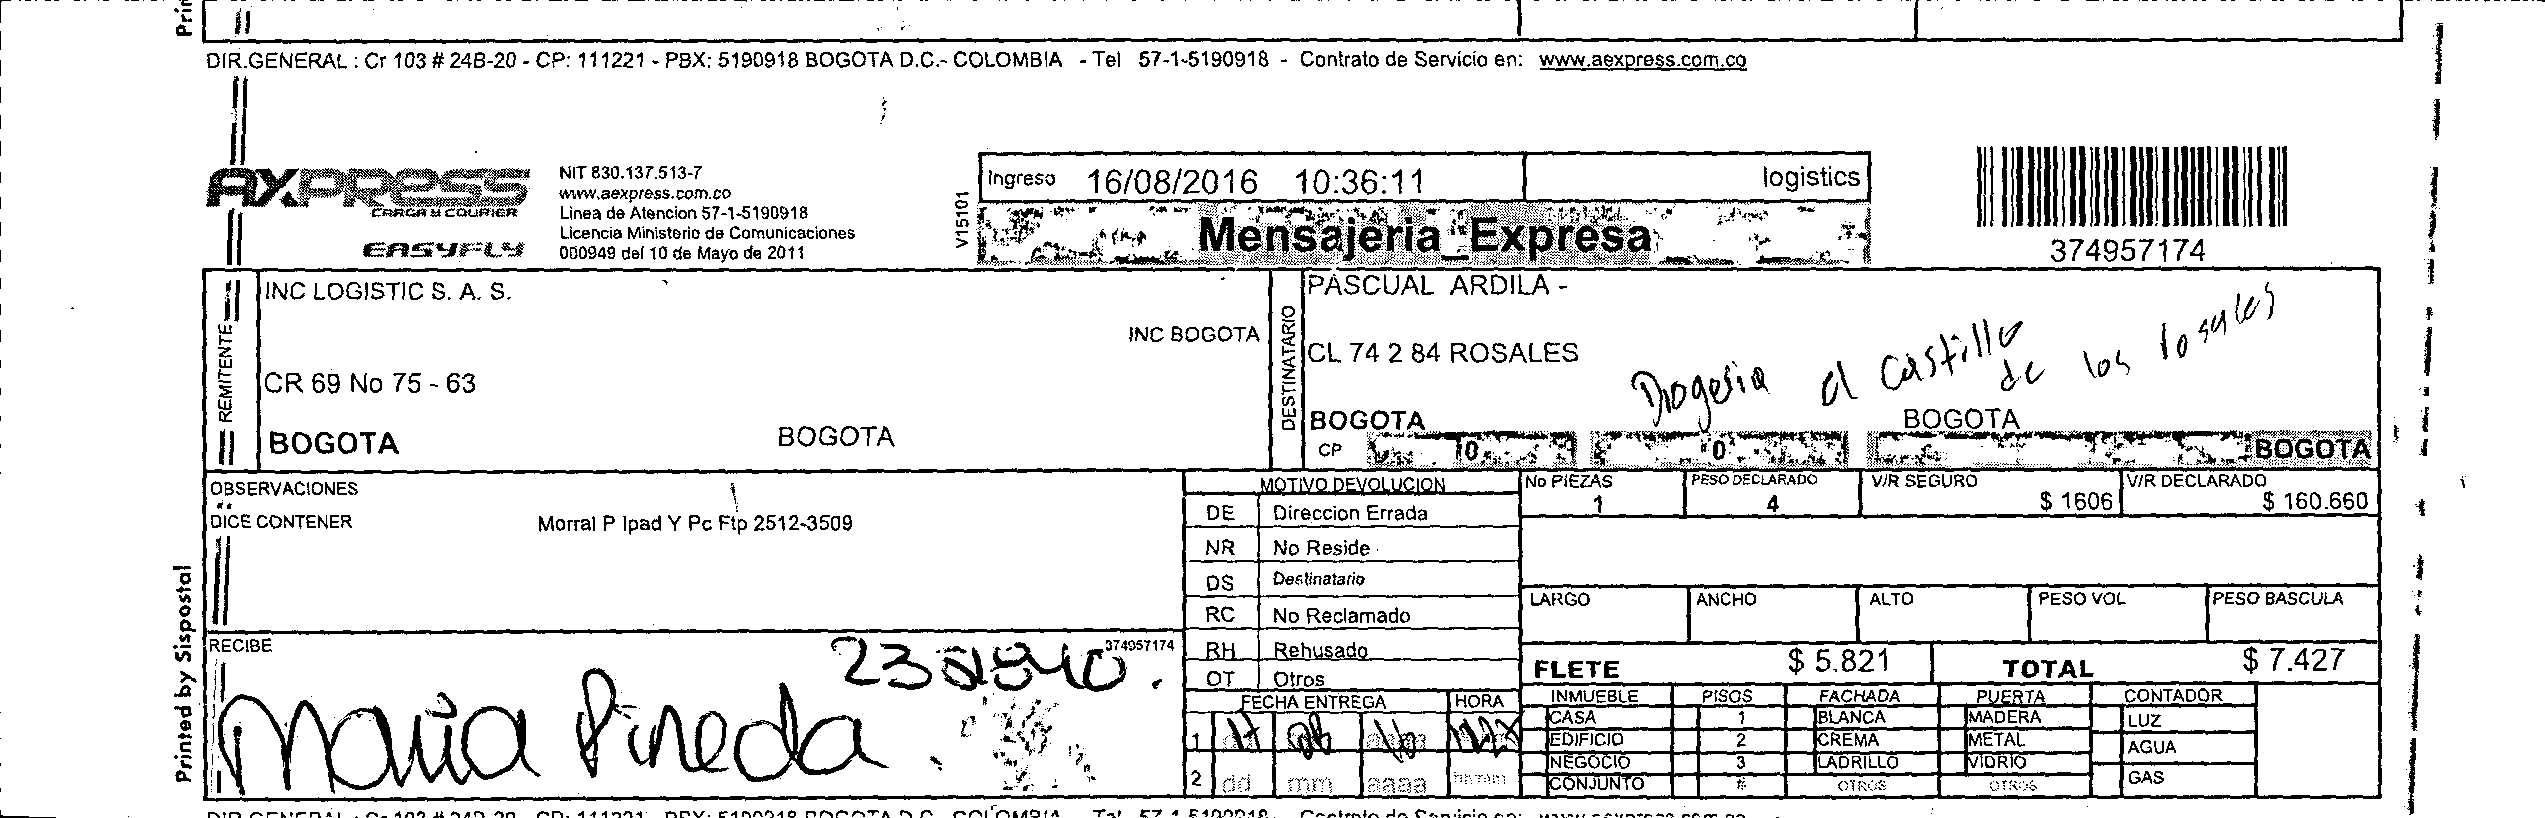 DIR.GENERAL : Cr 103 # 24B-20 - CP: 111221 - PBX: 5190918 BOGOTA D.C.- COLOMBIA - Tel 57-1-5190918 - Contrato de Servicio en: www.aexpress.com.co
AXPRESS
CARGA Y COURIER
EASYFLY
NIT 830.137.513-7
www.aexpress.com.co
Linea de Atencion 57-1-5190918
Licencia Ministerio de Comunicaciones
000949 del 10 de Mayo de 2011
V15101
Ingreso 16/08/2016 10:36:11 logistics
Mensajeria Expresa
374957174
REMITENTE
INC LOGISTIC S. A. S.
INC BOGOTA
CR 69 No 75 - 63
BOGOTA BOGOTA
DESTINATARIO
PASCUAL ARDILA -
CL 74 2 84 ROSALES
Drogeria el Castillo de los rosales
BOGOTA BOGOTA
CP 0 0 BOGOTA
OBSERVACIONES
DICE CONTENER Morral P Ipad Y Pc Ftp 2512-3509
MOTIVO DEVOLUCION
DE Direccion Errada
NR No Reside
DS Destinatario
RC No Reclamado
RH Rehusado
OT Otros
No PIEZAS PESO DECLARADO V/R SEGURO V/R DECLARADO
1 4 $ 1606 $ 160.660
LARGO ANCHO ALTO PESO VOL PESO BASCULA
FLETE $ 5.821 TOTAL $ 7.427
RECIBE 374957174
Maria Pineda
FECHA ENTREGA HORA
1
2 dd mm aaaa hh:mm
INMUEBLE PISOS FACHADA PUERTA CONTADOR
CASA 1 BLANCA MADERA LUZ
EDIFICIO 2 CREMA METAL AGUA
NEGOCIO 3 LADRILLO VIDRIO GAS
CONJUNTO OTROS OTROS
Printed by Sispostal